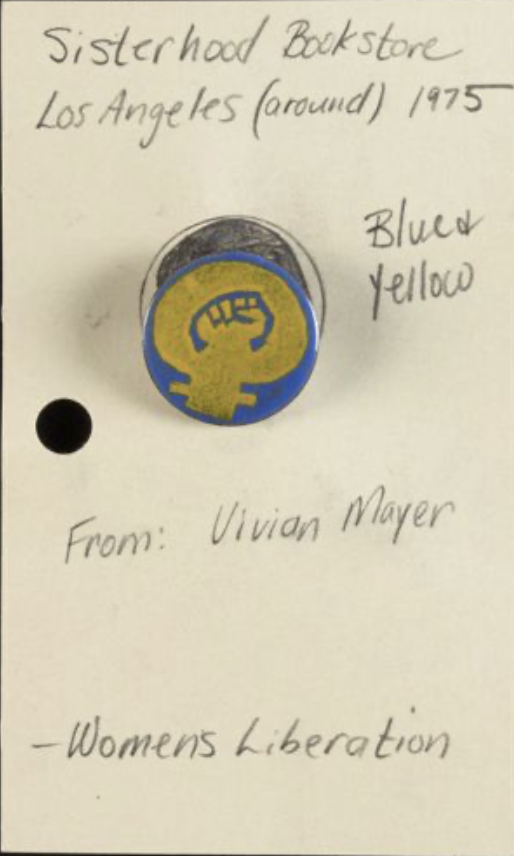 Sisterhood Bookstore
Los Angeles (around) 1975
Blue &
Yellow
From: Vivian Mayer
- Womens Liberation